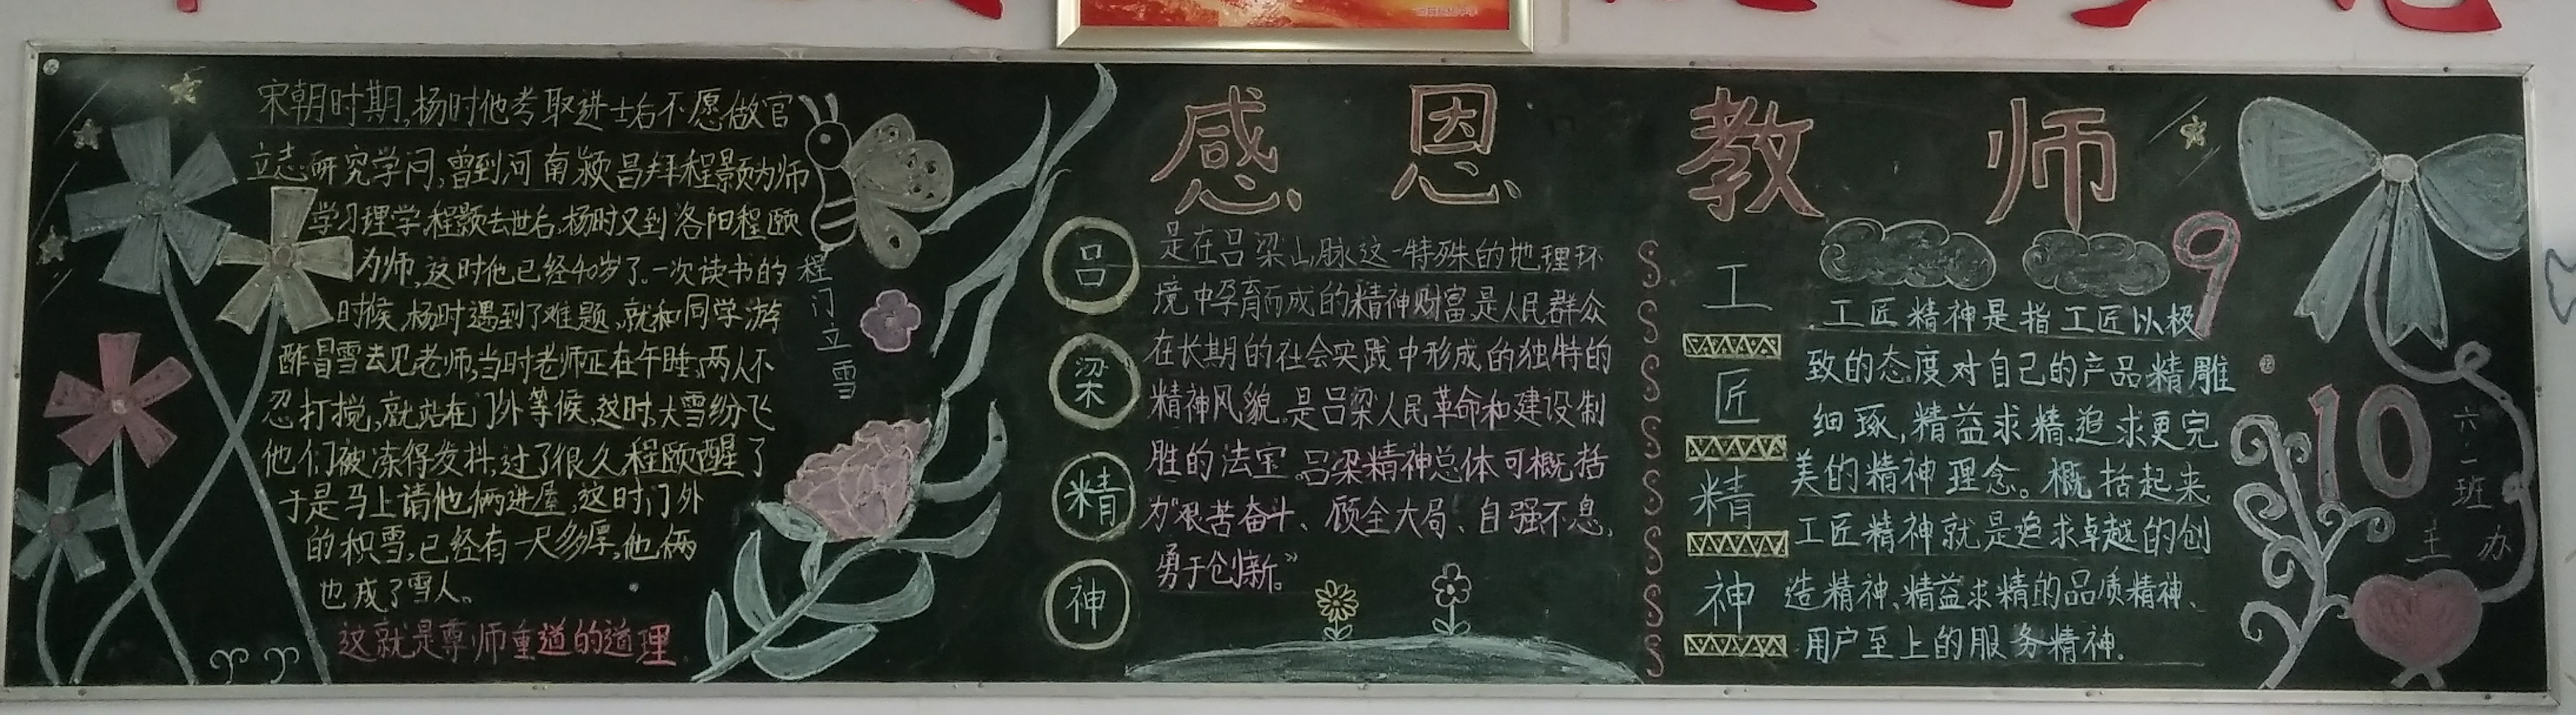 宋朝时期,杨时他考取进士后不愿做官
立志研究学问,曾到河南颍昌拜程颢为师
学习理学,程颢去世后,杨时又到洛阳程颐
为师,这时他已经40岁了。一次读书的
时候,杨时遇到了难题,就和同学游
酢冒雪去见老师,当时老师正在午睡,两人不
忍打搅,就站在门外等候,这时,大雪纷飞
他们被冻得发抖,过了很久程颐醒了
于是马上请他俩进屋,这时门外
的积雪,已经有一尺多厚,他俩
也成了雪人。
这就是尊师重道的道理.
程门立雪
感恩教师
吕梁精神
是在吕梁山脉这一特殊的地理环
境中孕育而成的精神财富,是人民群众
在长期的社会实践中形成的独特的
精神风貌.是吕梁人民革命和建设制
胜的法宝。吕梁精神总体可概括
为“艰苦奋斗、顾全大局、自强不息,
勇于创新。”
工匠精神
工匠精神是指工匠以极
致的态度对自己的产品精雕
细琢,精益求精,追求更完
美的精神理念。概括起来
工匠精神就是追求卓越的创
造精神、精益求精的品质精神、
用户至上的服务精神.
9
10
六·一班
主办